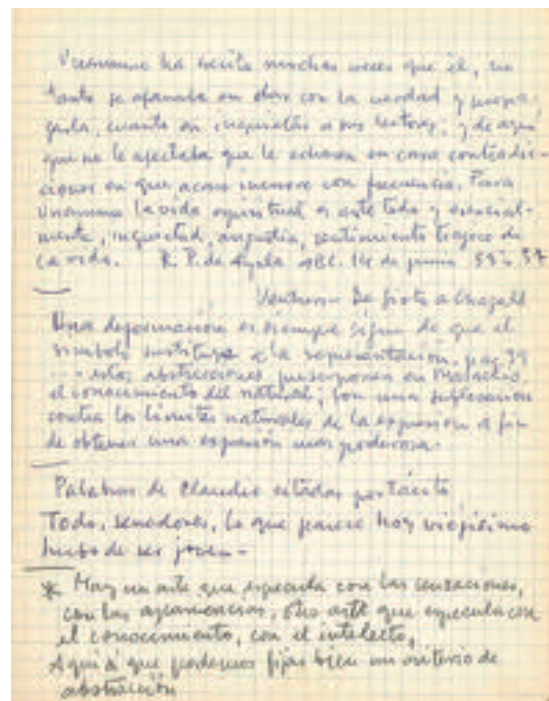 Unamuno ha escrito muchas veces que él, no
tanto se afanaba en dar con la verdad y
cuanto en inquietar a sus lectores; y de aquí
que no le afectaba que le echasen en cara contradic-
ciones en que acaso incurre con frecuencia. Para
Unamuno la vida espiritual es ante todo y esencial-
mente, inquietud, angustia, sentimiento trágico de
la vida. R. P. de Ayala ABC. 14 de junio
Venturi - De Giotto a Chagall
Una deformación es siempre signo de que el
símbolo sustituye a la representación. pag 39
--- estas abstracciones presuponen en
el conocimiento del natural; son una sublevación
contra los límites naturales de la expresión a fin
de obtener una expresión más poderosa.
Palabras de Claudio citadas por Tácito
Todo, senadores, lo que parece hoy viejísimo
hubo de ser joven -
* Hay un arte que especula con las sensaciones,
con las apariencias, otro arte que especula con
el conocimiento, con el intelecto,
Aquí sí que podemos fijar bien un criterio de
abstracción